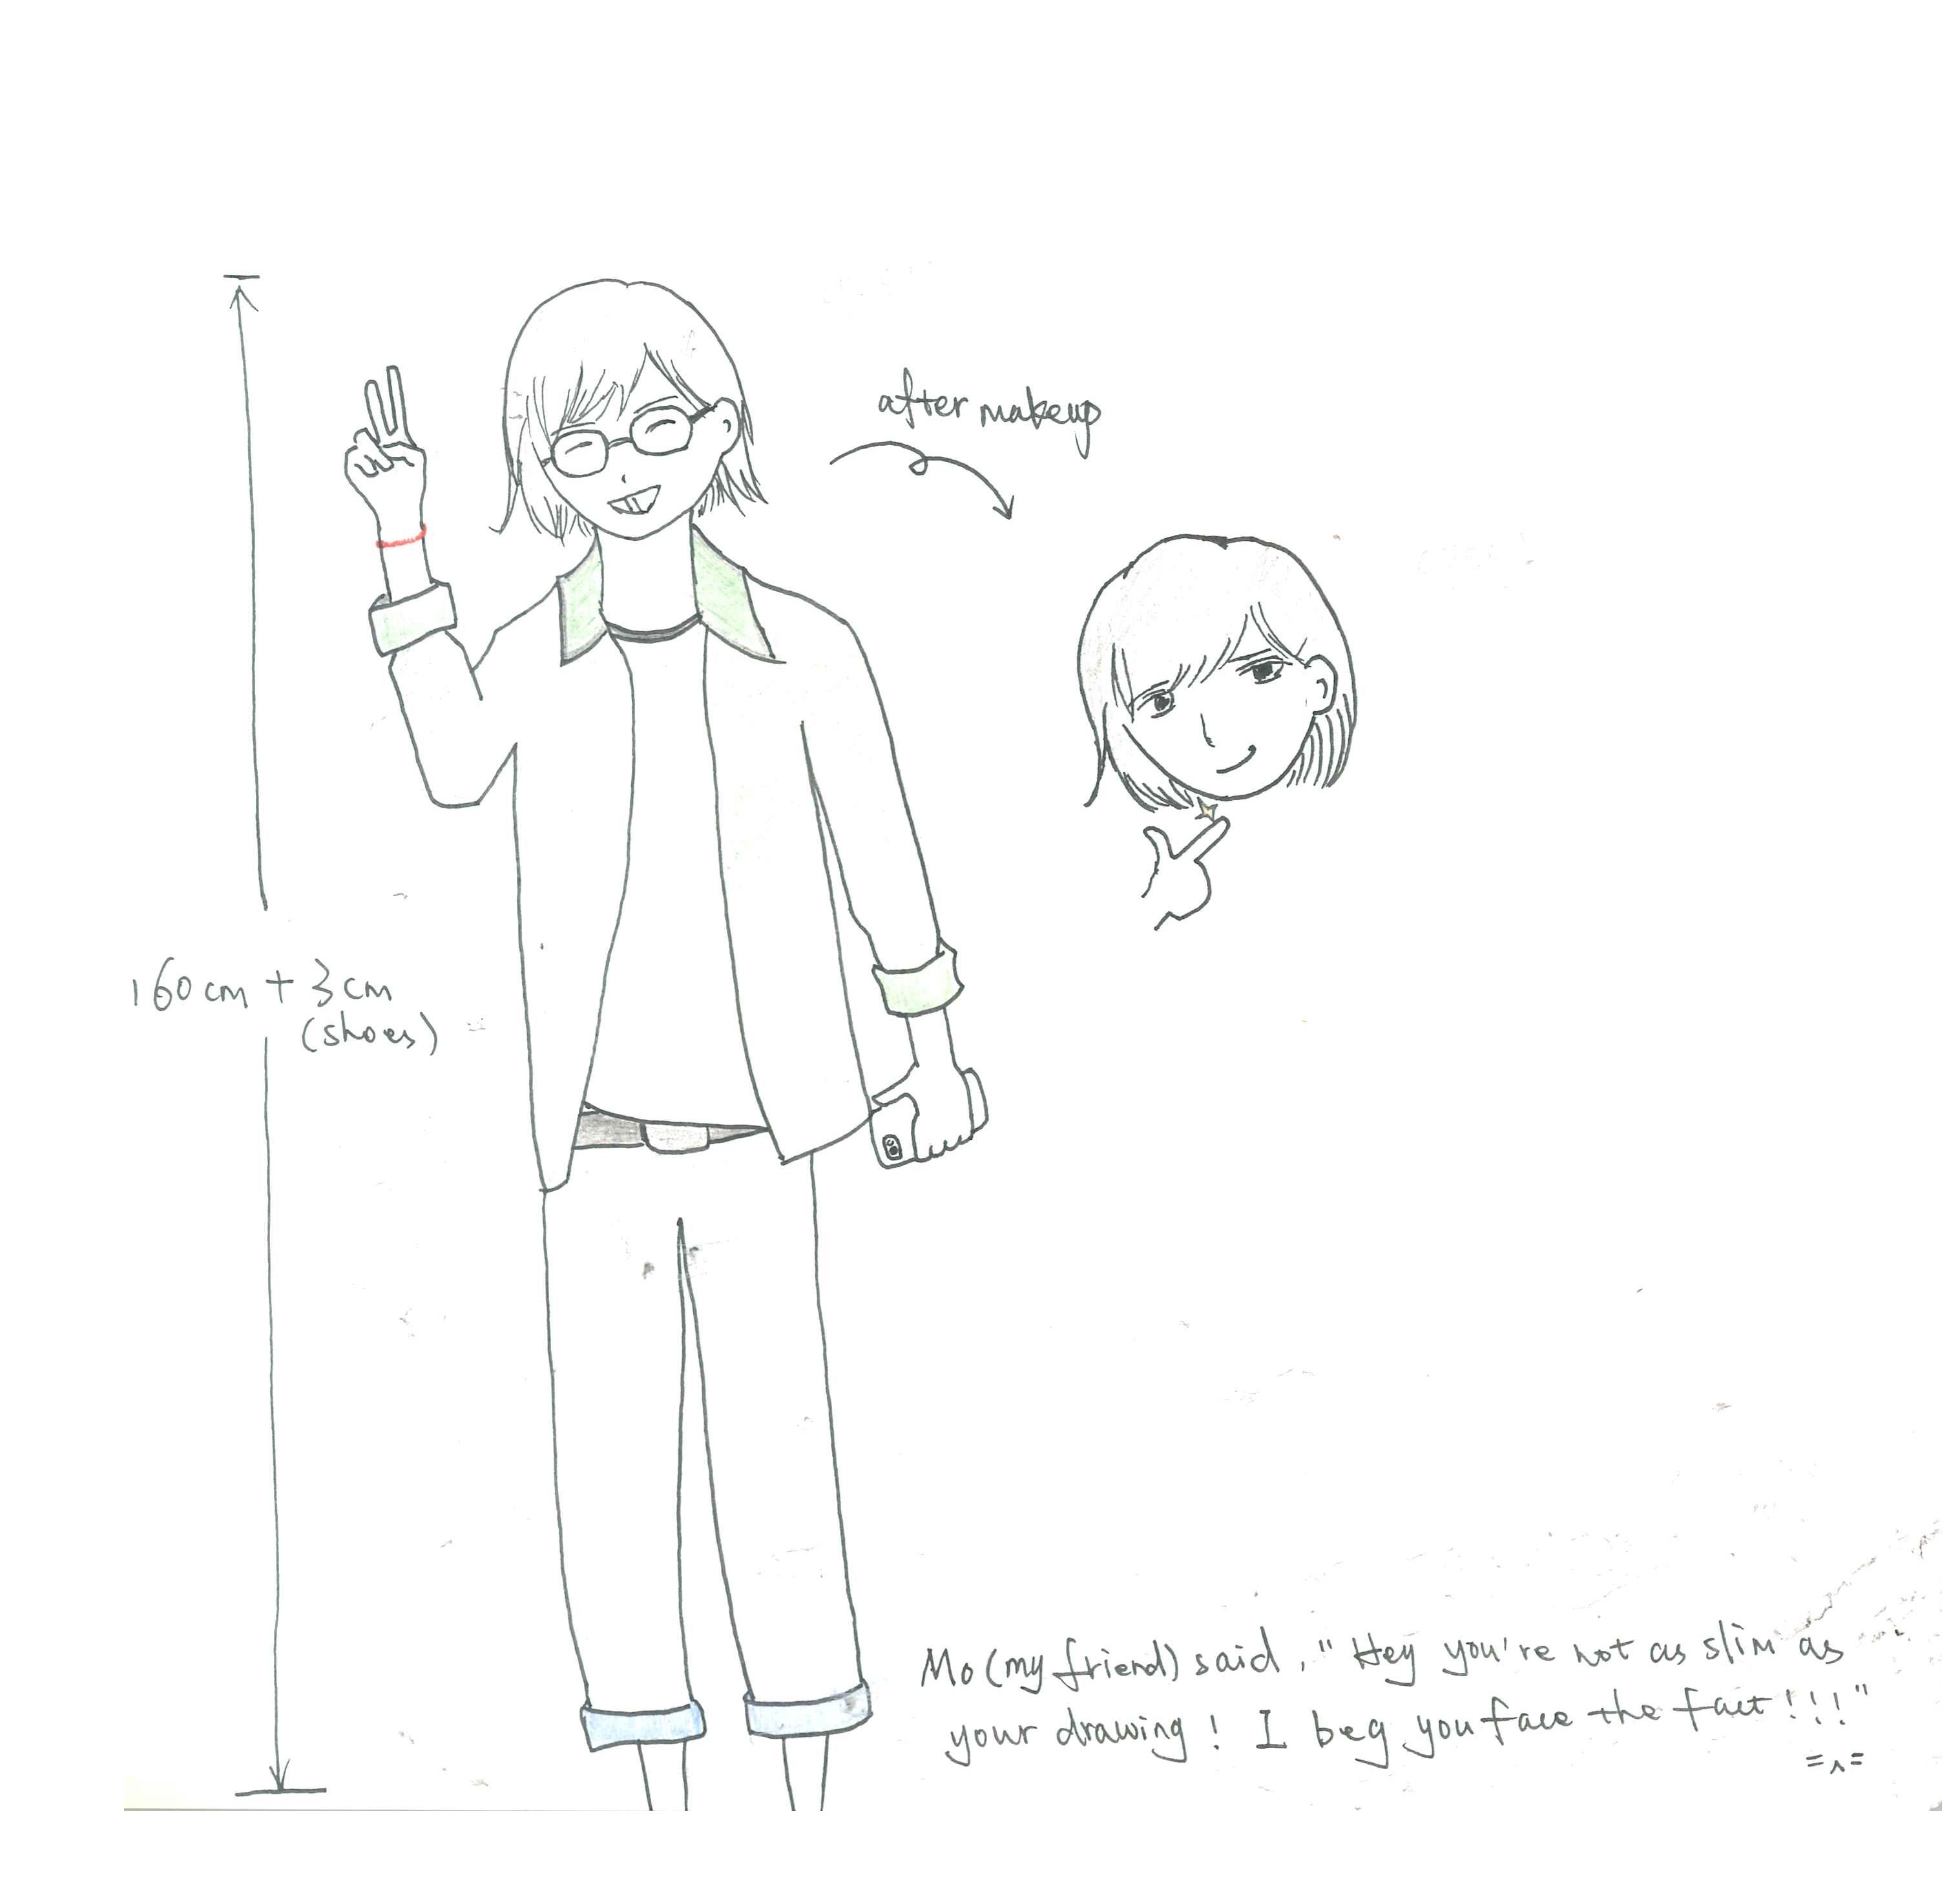 after makeup
160cm + 3cm
(shoes)
Mo (my friend) said, "Hey you're not as slim as
your drawing! I beg you face the fact!!!"
=^=